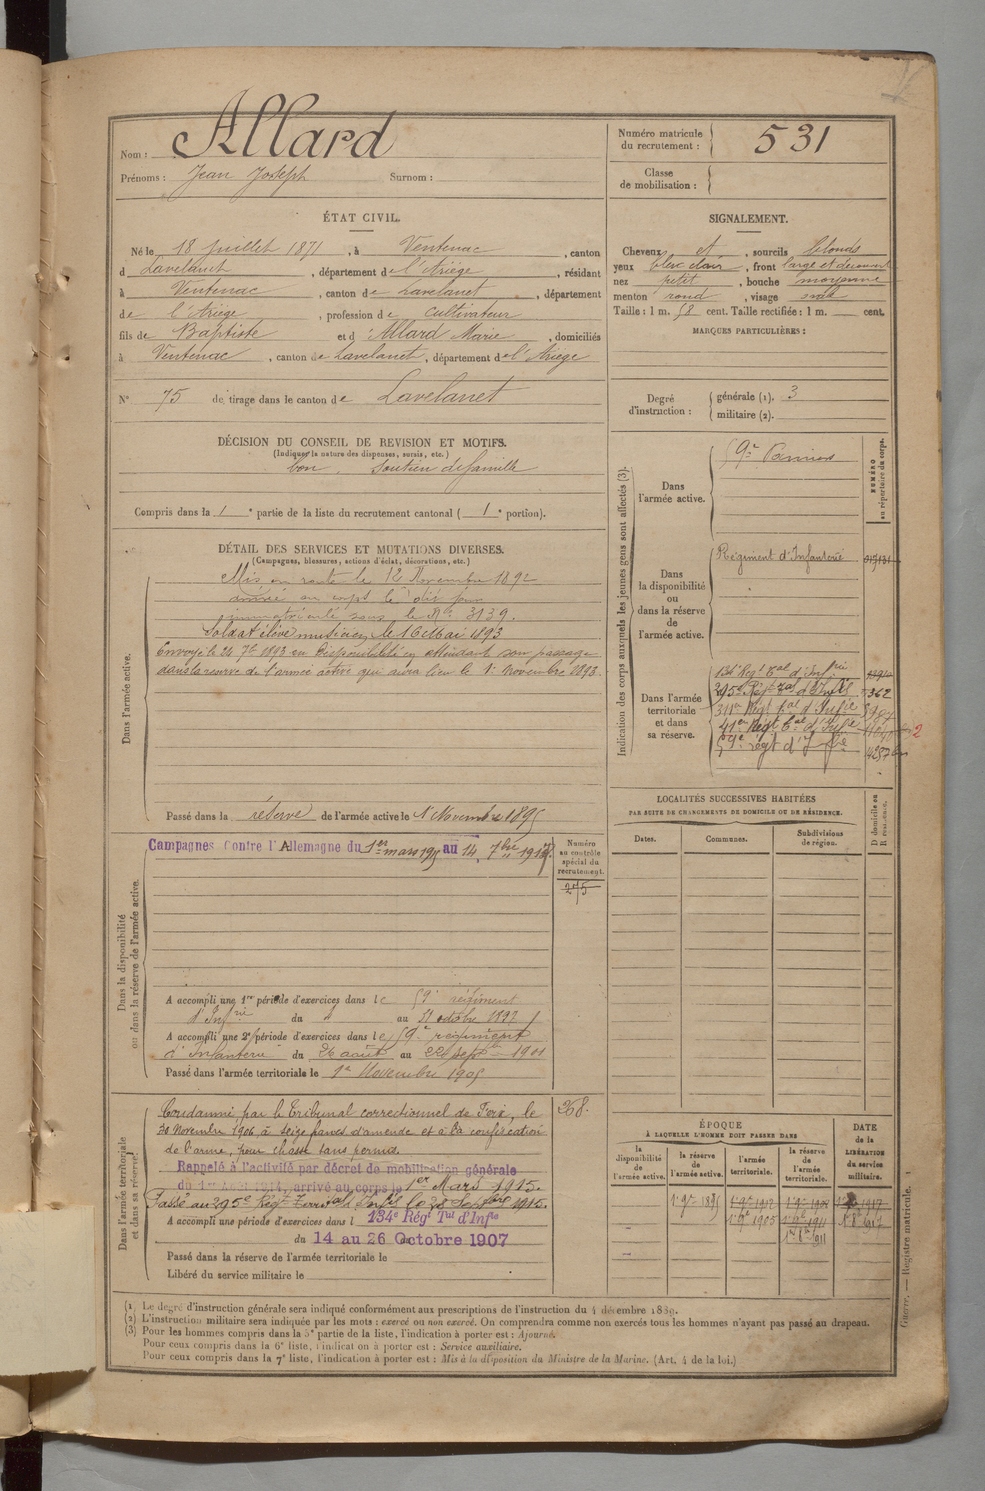 Nom : Allard
Prénoms : Jean Joseph Surnom :
Numéro matricule du recrutement : 531
Classe de mobilisation :
ÉTAT CIVIL.
Né le 18 Juillet 1871, à Ventenac, canton
d Lavelanet, département de l'Ariège, résidant
à Ventenac, canton de Lavelanet, département
de l'Ariège, profession de Cultivateur
fils de Baptiste et d' Allard Marie, domiciliés
à Ventenac, canton de Lavelanet, département de l'Ariege
N° 75 de tirage dans le canton de Lavelanet
DÉCISION DU CONSEIL DE REVISION ET MOTIFS.
(Indiquer la nature des dispenses, sursis, etc.)
bon. Soutien de famille
Compris dans la 1e partie de la liste du recrutement cantonal ( 1e portion).
SIGNALEMENT.
Cheveux et, sourcils blonds
yeux bleu clair, front large et découvert
nez petit, bouche moyenne
menton rond, visage
Taille : 1 m. 58 cent. Taille rectifiée : 1 m. cent.
MARQUES PARTICULIÈRES :
Degré d'instruction : générale (1). 3
militaire (2).
DÉTAIL DES SERVICES ET MUTATIONS DIVERSES.
(Campagnes, blessures, actions d'éclat, décorations, etc.)
Dans l'armée active.
Mis en route le 12 Novembre 1892
arrivé au corps le dit jour
immatriculé sous le No 3139.
Soldat élève musicien le 16 Mai 1893
Envoyé le 24 7bre 1893 en disponibilité en attendant son passage
dans la réserve de l'armée active qui aura lieu le 1er Novembre 1893.
Passé dans la réserve de l'armée active le 1er Novembre 1895
Dans la disponibilité
ou dans la réserve de l'armée active.
Campagnes Contre l'Allemagne du 1er mars 1915 au 14 7bre
Numéro au contrôle spécial du recrutement.
275
A accompli une 1re période d'exercices dans le 59e régiment
d'Infrie du " au 31 octobre 1897
A accompli une 2e période d'exercices dans le 59e régiment
d'Infanterie du 26 août au 22 septbre 1901
Passé dans l'armée territoriale le 1er Novembre 1905
Dans l'armée territoriale
et dans sa réserve.
368.
Condamné par le Tribunal correctionnel de Foix, le
30 Novembre 1906, à seize francs d'amende et à la confiscation
de l'arme, pour chasse sans permis.
Rappelé à l'activité par décret de mobilisation générale
du 1er Août 1914, arrivé au corps le 1er Mars 1915.
Passé au 295e Régt Territal d'Infie le 20 Septbre 1915.
A accompli une période d'exercices dans l 134e Régt Tal d'Infie
du 14 au 26 Octobre 1907
Passé dans la réserve de l'armée territoriale le
Libéré du service militaire le
Indication des corps auxquels les jeunes gens sont affectés (3).
NUMÉRO au répertoire du corps.
Dans l'armée active.
59e Pamiers
Dans la disponibilité ou dans la réserve de l'armée active.
Régiment d'Infanterie
Dans l'armée territoriale et dans sa réserve.
134e Régt Tal d'Infrie
295e Régt Tal d'Infie 5362
311e Régt Tal d'Infie
41e Régt Tal d'Infie
59e régt d'Infie
2
LOCALITÉS SUCCESSIVES HABITÉES
PAR SUITE DE CHANGEMENTS DE DOMICILE OU DE RÉSIDENCE.
Dates. Communes. Subdivisions de région. D domicile ou R résidence.
ÉPOQUE
À LAQUELLE L'HOMME DOIT PASSER DANS
la disponibilité de l'armée active. la réserve de l'armée active. l'armée territoriale. la réserve de l'armée territoriale.
DATE de la LIBÉRATION du service militaire.
1er 9bre 1895 1er 9bre 1905 1er 8bre 1911 1917
Guerre. — Registre matricule.
(1) Le degré d'instruction générale sera indiqué conformément aux prescriptions de l'instruction du 4 décembre 1889.
(2) L'instruction militaire sera indiquée par les mots : exercé ou non exercé. On comprendra comme non exercés tous les hommes n'ayant pas passé au drapeau.
(3) Pour les hommes compris dans la 5e partie de la liste, l'indication à porter est : Ajourné.
Pour ceux compris dans la 6e liste, l'indication à porter est : Service auxiliaire.
Pour ceux compris dans la 7e liste, l'indication à porter est : Mis à la disposition du Ministre de la Marine. (Art. 4 de la loi.)